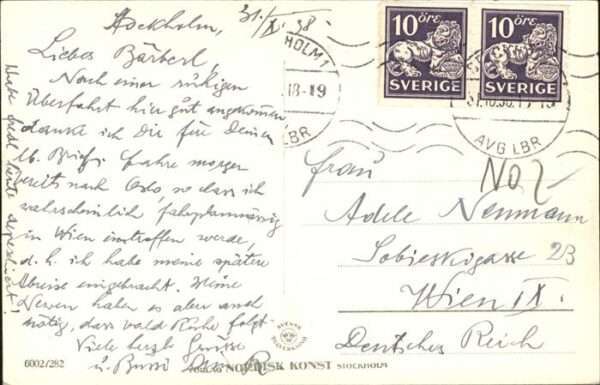 Stockholm, 31./X. 38.
Liebes Bärberl,
Nach einer ruhigen
Überfahrt hier gut angekommen
danke ich Dir für Deinen
lb. Brief. Fahre morgen
bereits nach Oslo, so dass ich
wahrscheinlich fahrplanmässig
in Wien eintreffen werde,
d. h. ich habe meine spätere
Abreise eingebracht. Meine
Nerven haben es aber auch
nötig, dass bald Ruhe folgt.
Viele herzl. Grüsse
u. Bussi
heute depeschiert!
6002/282
10 ÖRE
SVERIGE
10 ÖRE
SVERIGE
HOLM 1
18-19
LBR
31.10.38.
AVG LBR
No 2
Frau
Adele Neumann
Sobieskigasse 23
Wien IX.
Deutsches Reich
NORDISK KONST STOCKHOLM